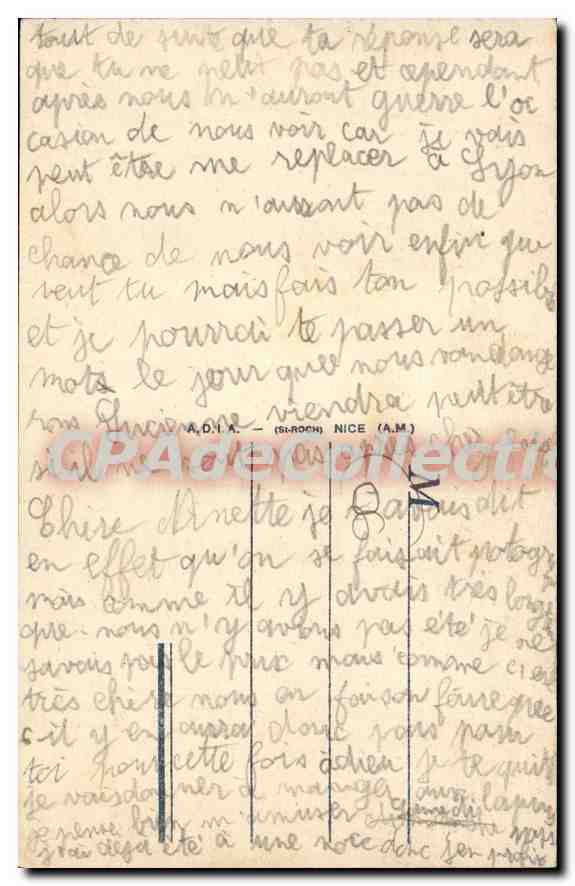 tout de suite que ta réponse sera
que tu ne peut pas et cependant
après nous n'auront guerre l'oc
casion de nous voir car je vais
peut être me replacer à Lyon
alors nous n'auront pas de
chance de nous voir enfin que
veut tu mais fais ton possible
et je pourrai te passer un
mots le jour que nous vandange
rons Lucienne viendra peut être
A.D.I.A. — (St-ROCH) NICE (A.M.)
s'il ne sont pas
CPAdecollection
M
Chère Ninette je t'avais dit
en effet qu'on se faisait potogr
mais comme il y avais très longt
que nous n'y avions pas été je ne
savais pas le prix mais comme c'est
très chère nous en faison faire gree
c-il y en aurai donc pas pour
toi pour cette fois adieu je te quitte
je vais donner à manger aux lapins
je pense bien m'amuser
j'ai déjà été à une noce donc j'en